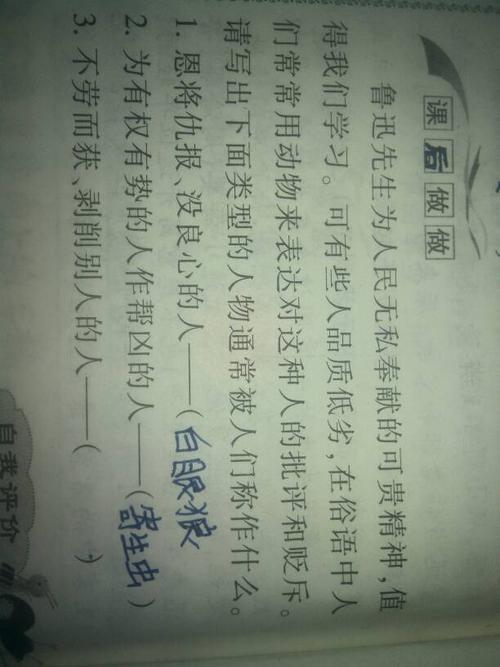 课后做做
鲁迅先生为人民无私奉献的可贵精神,值
得我们学习。可有些人品质低劣,在俗语中人
们常常用动物来表达对这种人的批评和贬斥。
请写出下面类型的人物通常被人们称作什么。
1. 恩将仇报、没良心的人——(白眼狼
2. 为有权有势的人作帮凶的人——(寄生虫)
3. 不劳而获、剥削别人的人——( )
自我评价